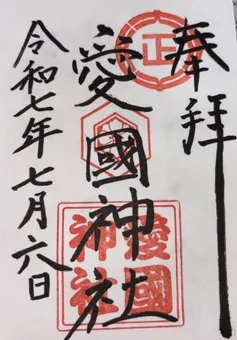 奉拜
正
愛國神社
愛國神社
令和七年七月六日